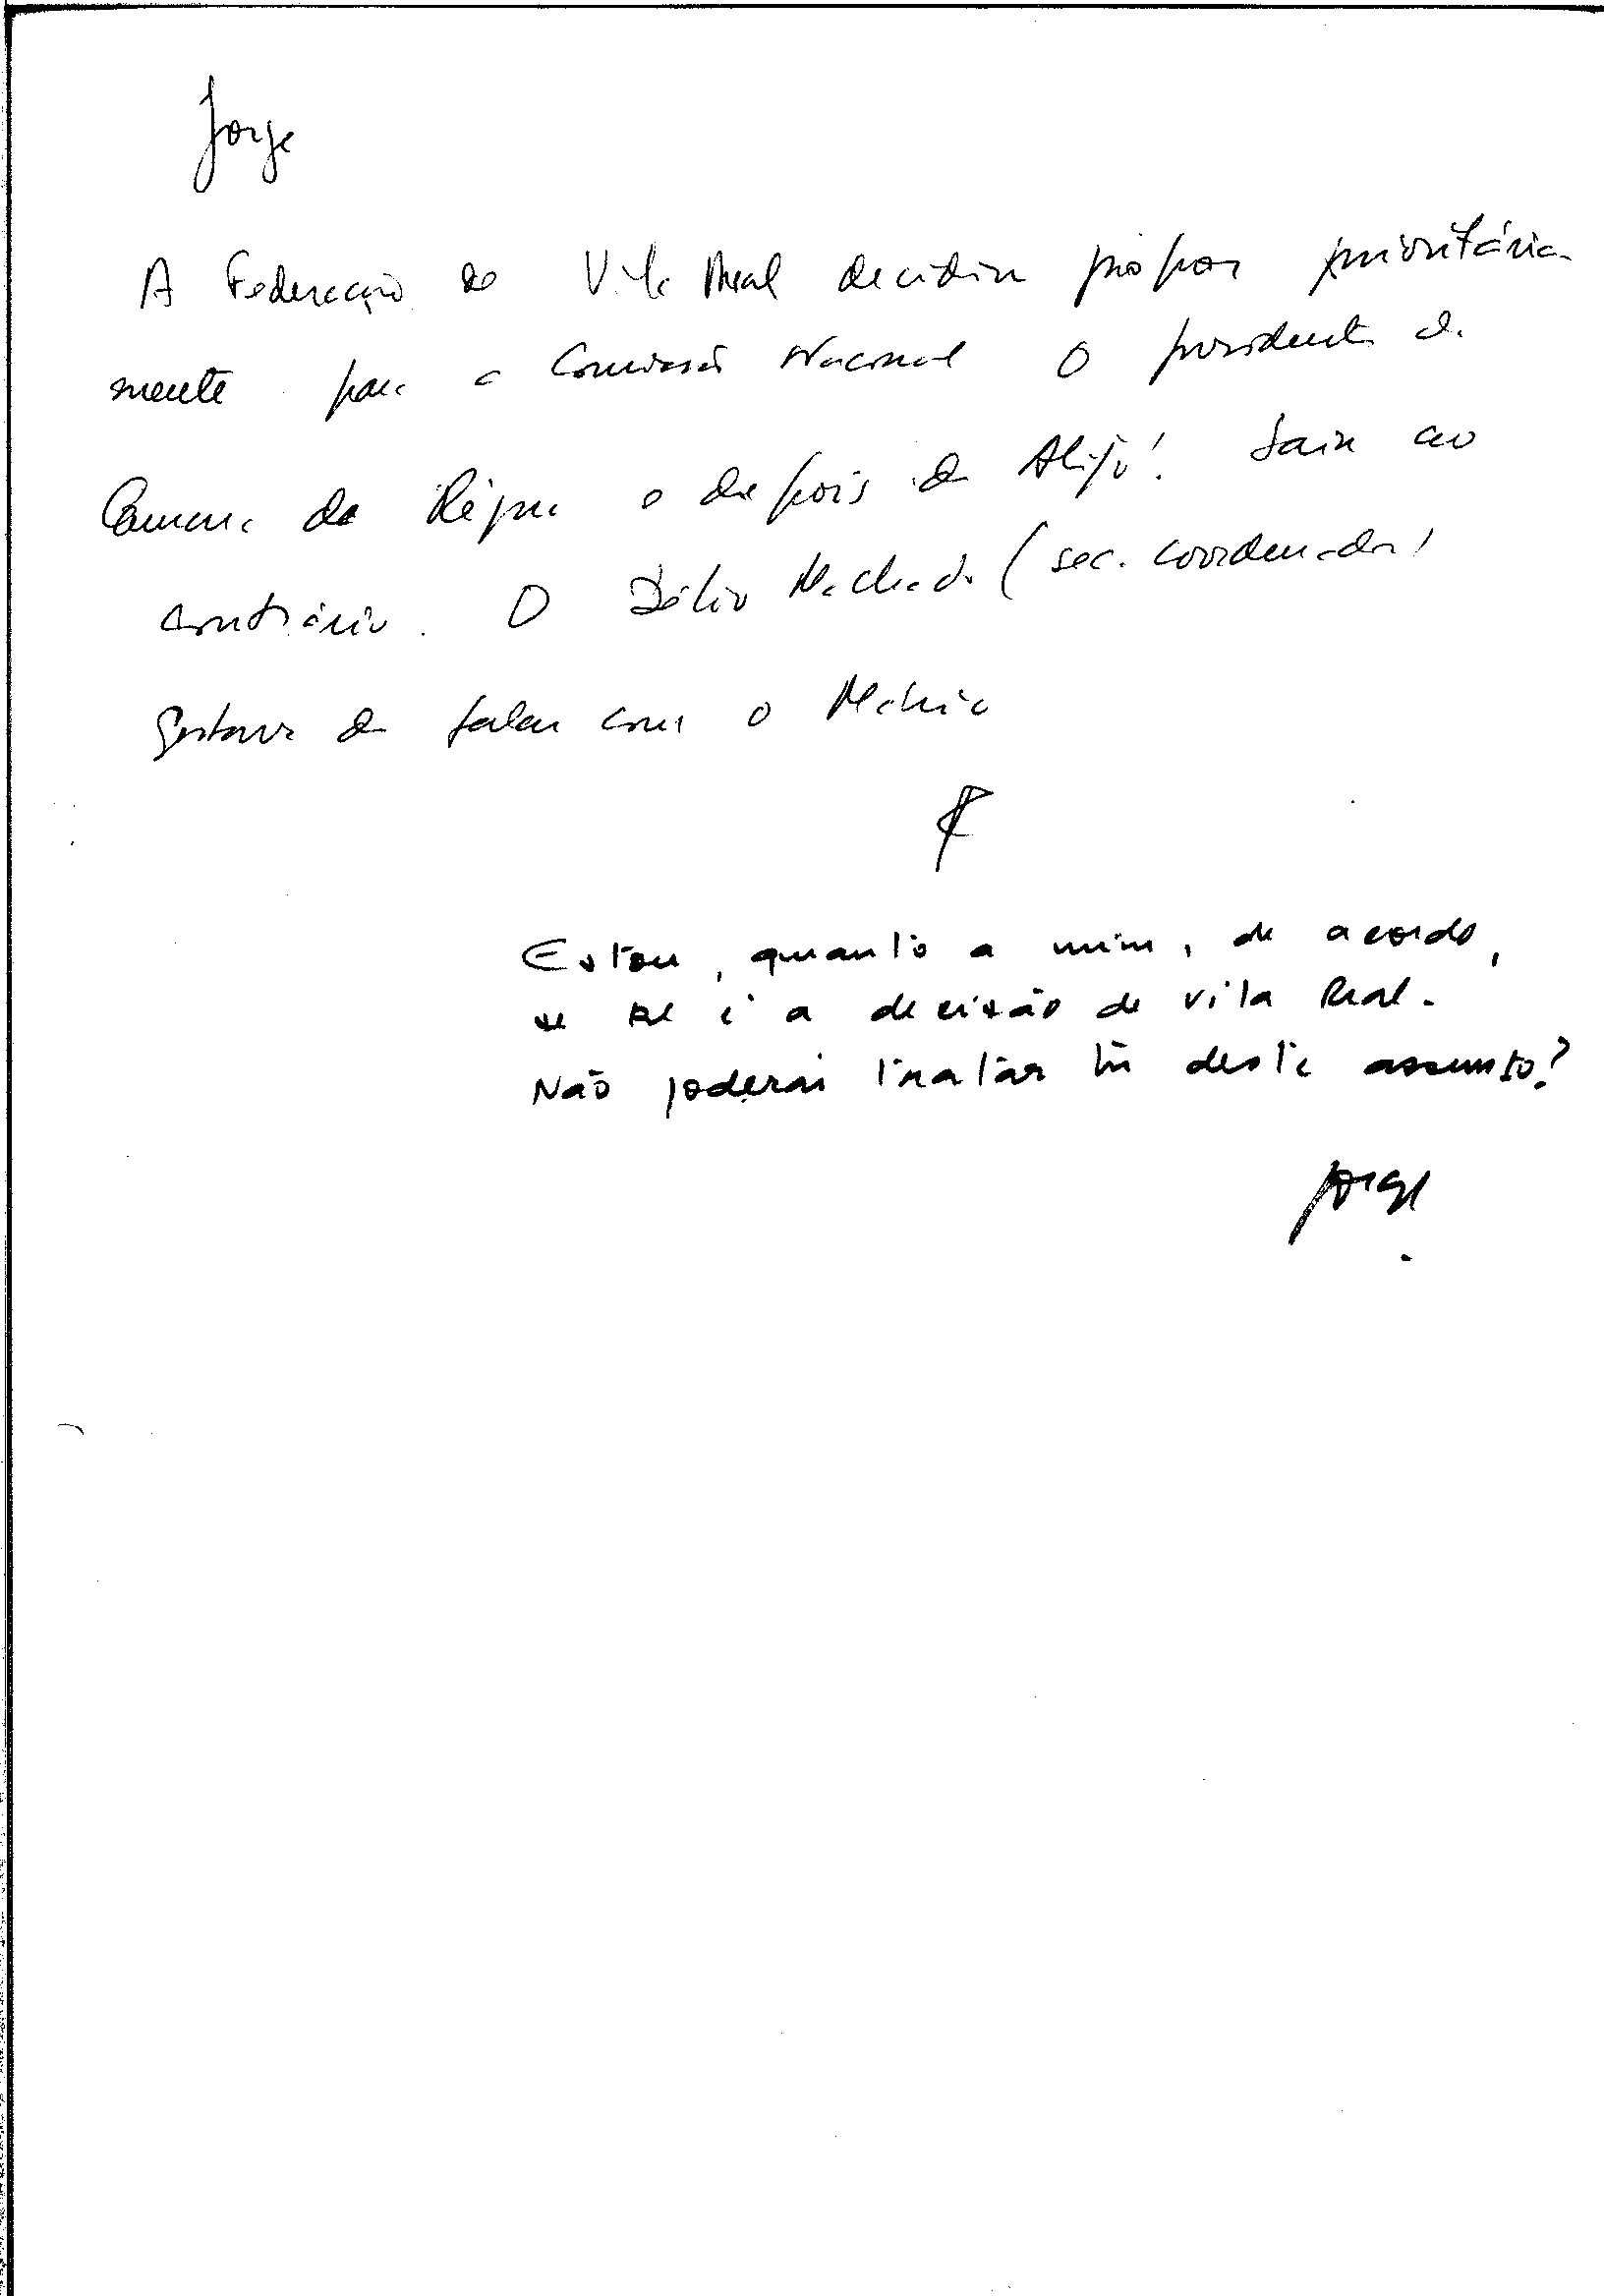 Jorge
A Federação de Vila Real decidiu propor prioritária-
mente para a Comissão Nacional o presidente da
Camara da Régua e depois o de Alijó! Saiu ao
contrário. O Délio Machado (sec. coordenador)
gostava de falar com o
Estou, quanto a mim, de acordo,
se tal é a decisão de Vila Real.
Não poderás tratar tu deste assunto?
Jorge